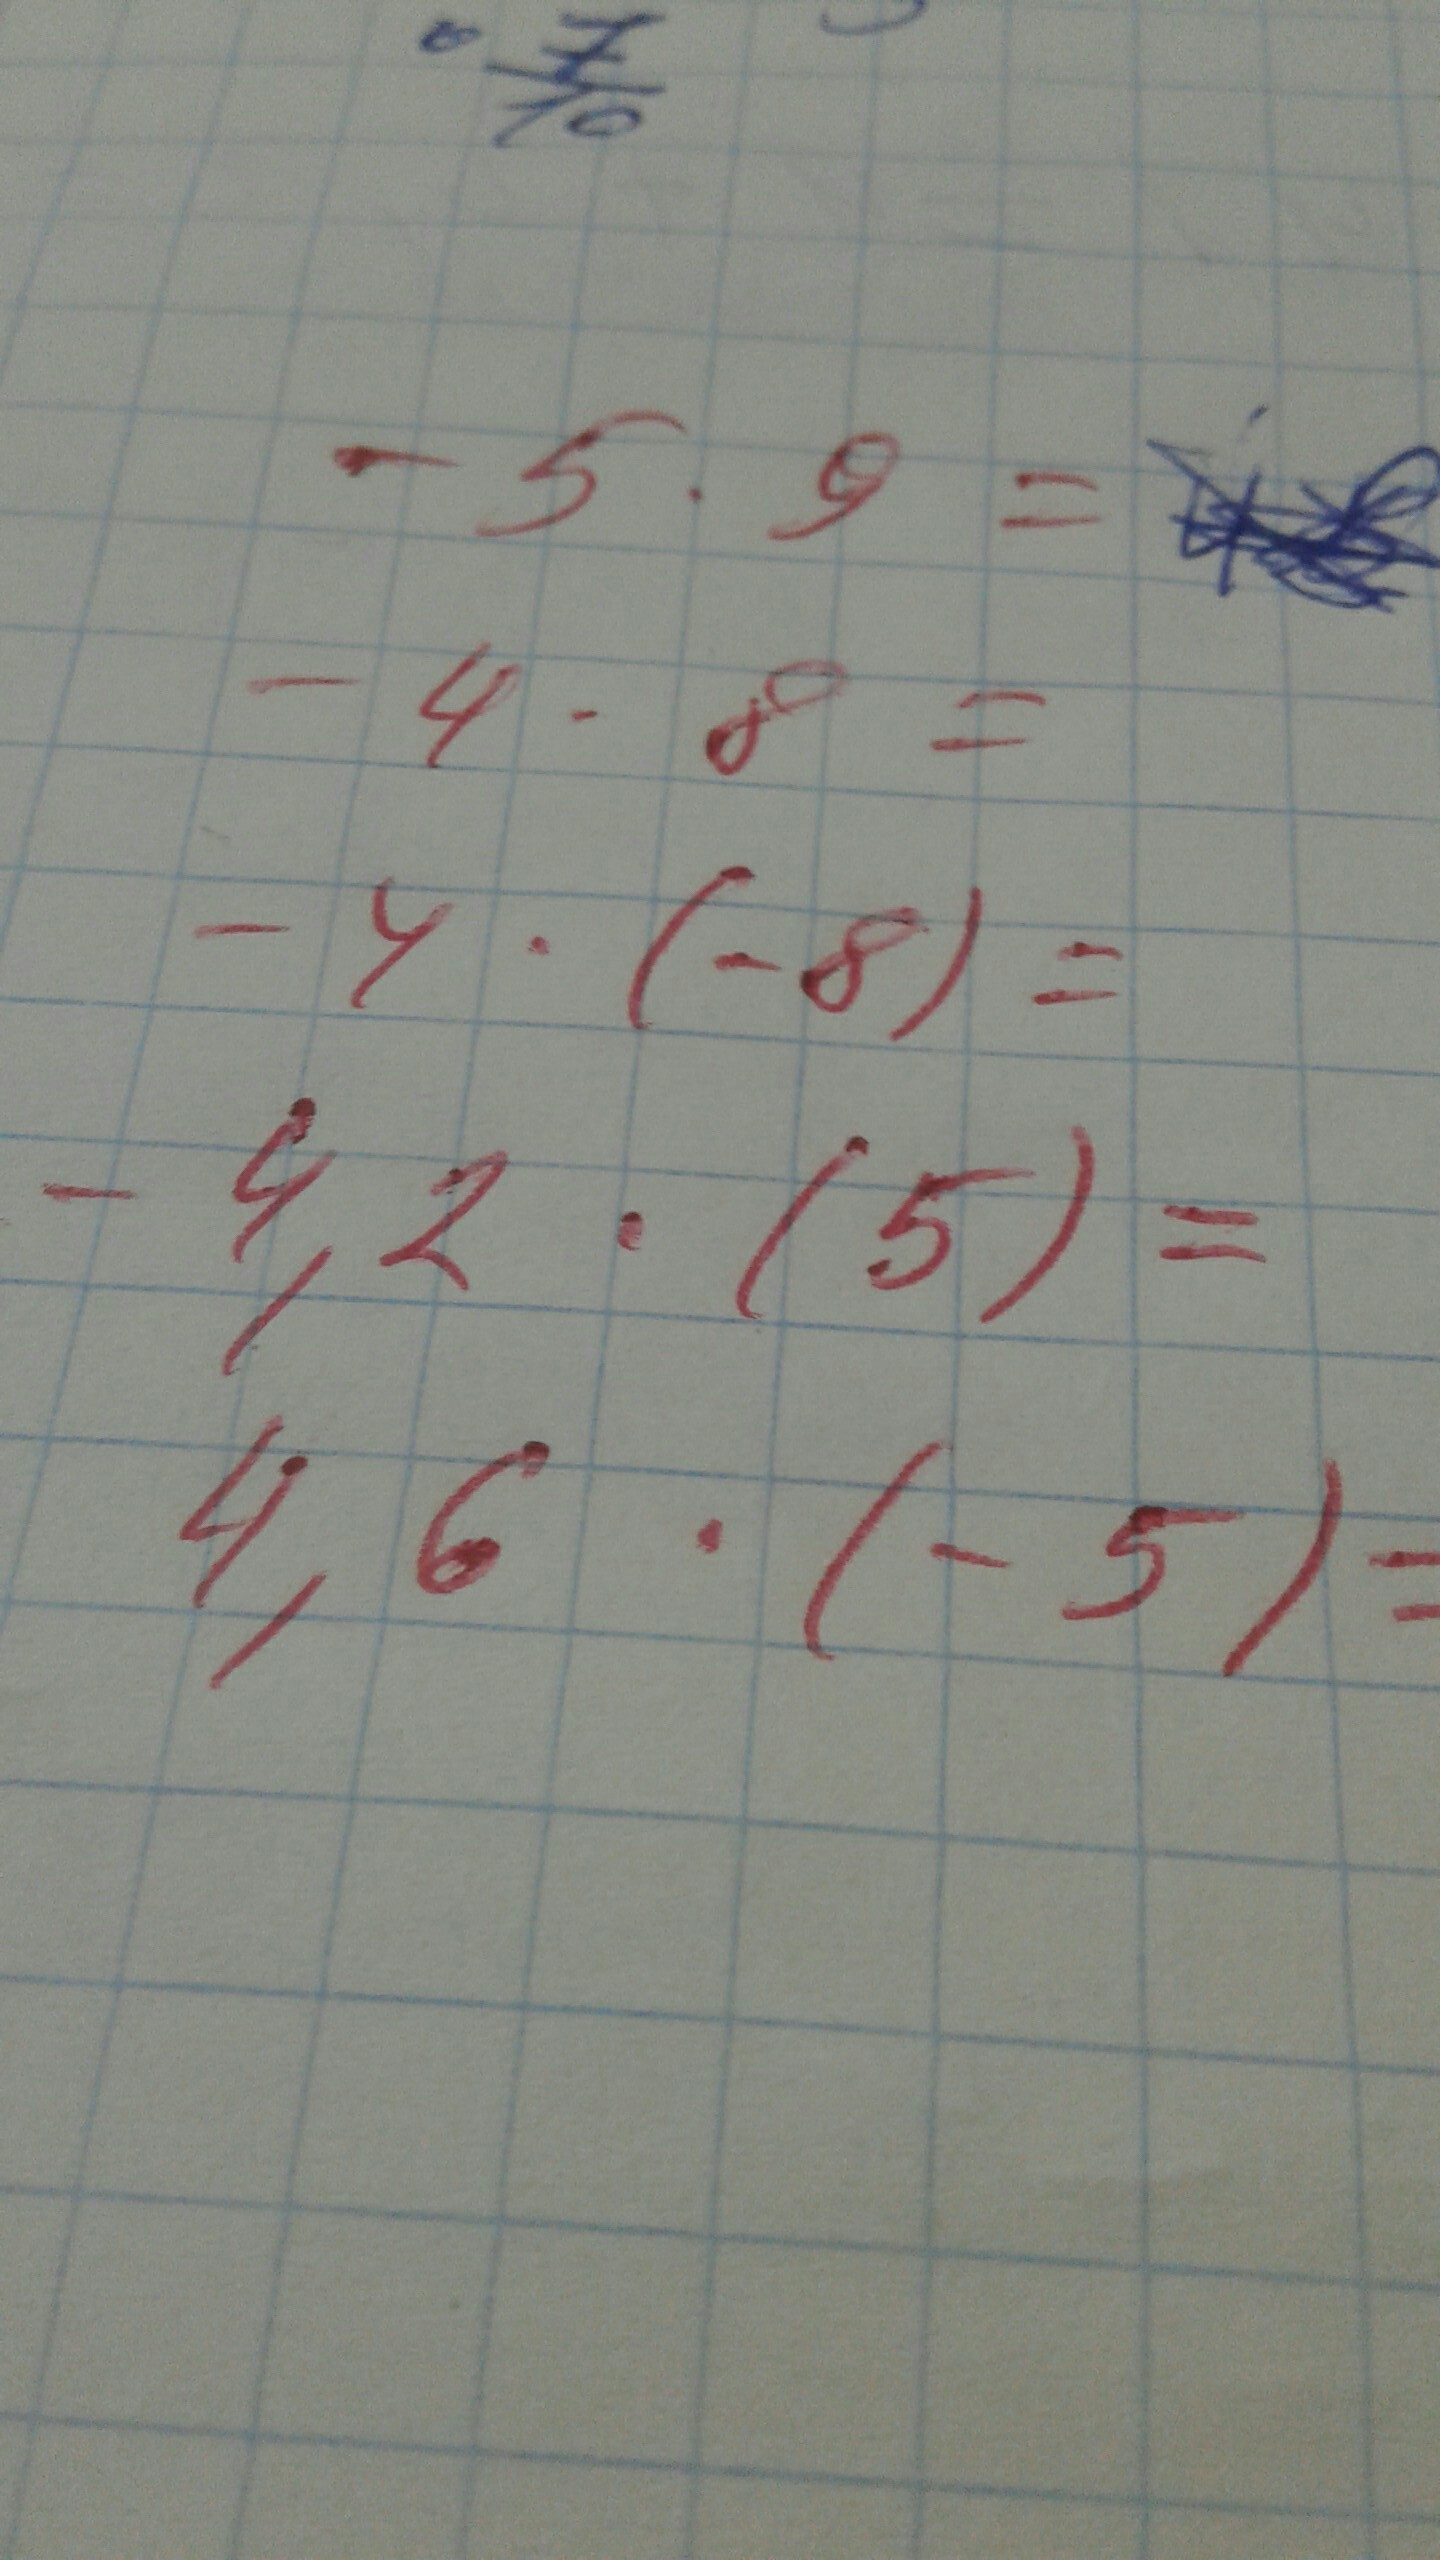 · 7/10
- 5 · 9 =
- 4 · 8 =
- 4 · (-8) =
- 4,2 · (5) =
4,6 · (- 5) =